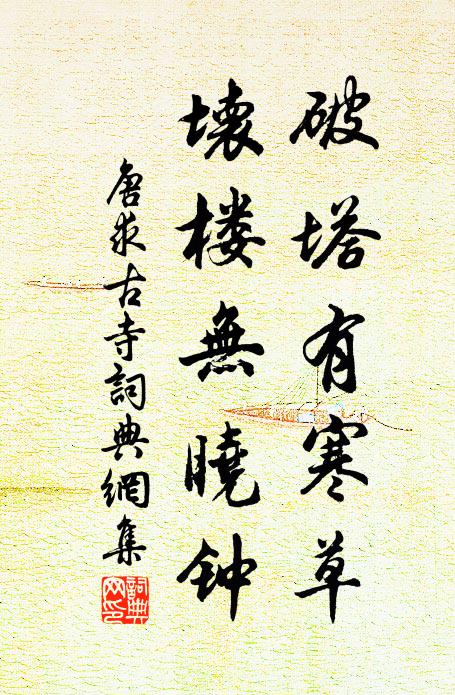 破塔有寒草
壞楼無曉钟
唐求古寺詞典網集
詞典网印